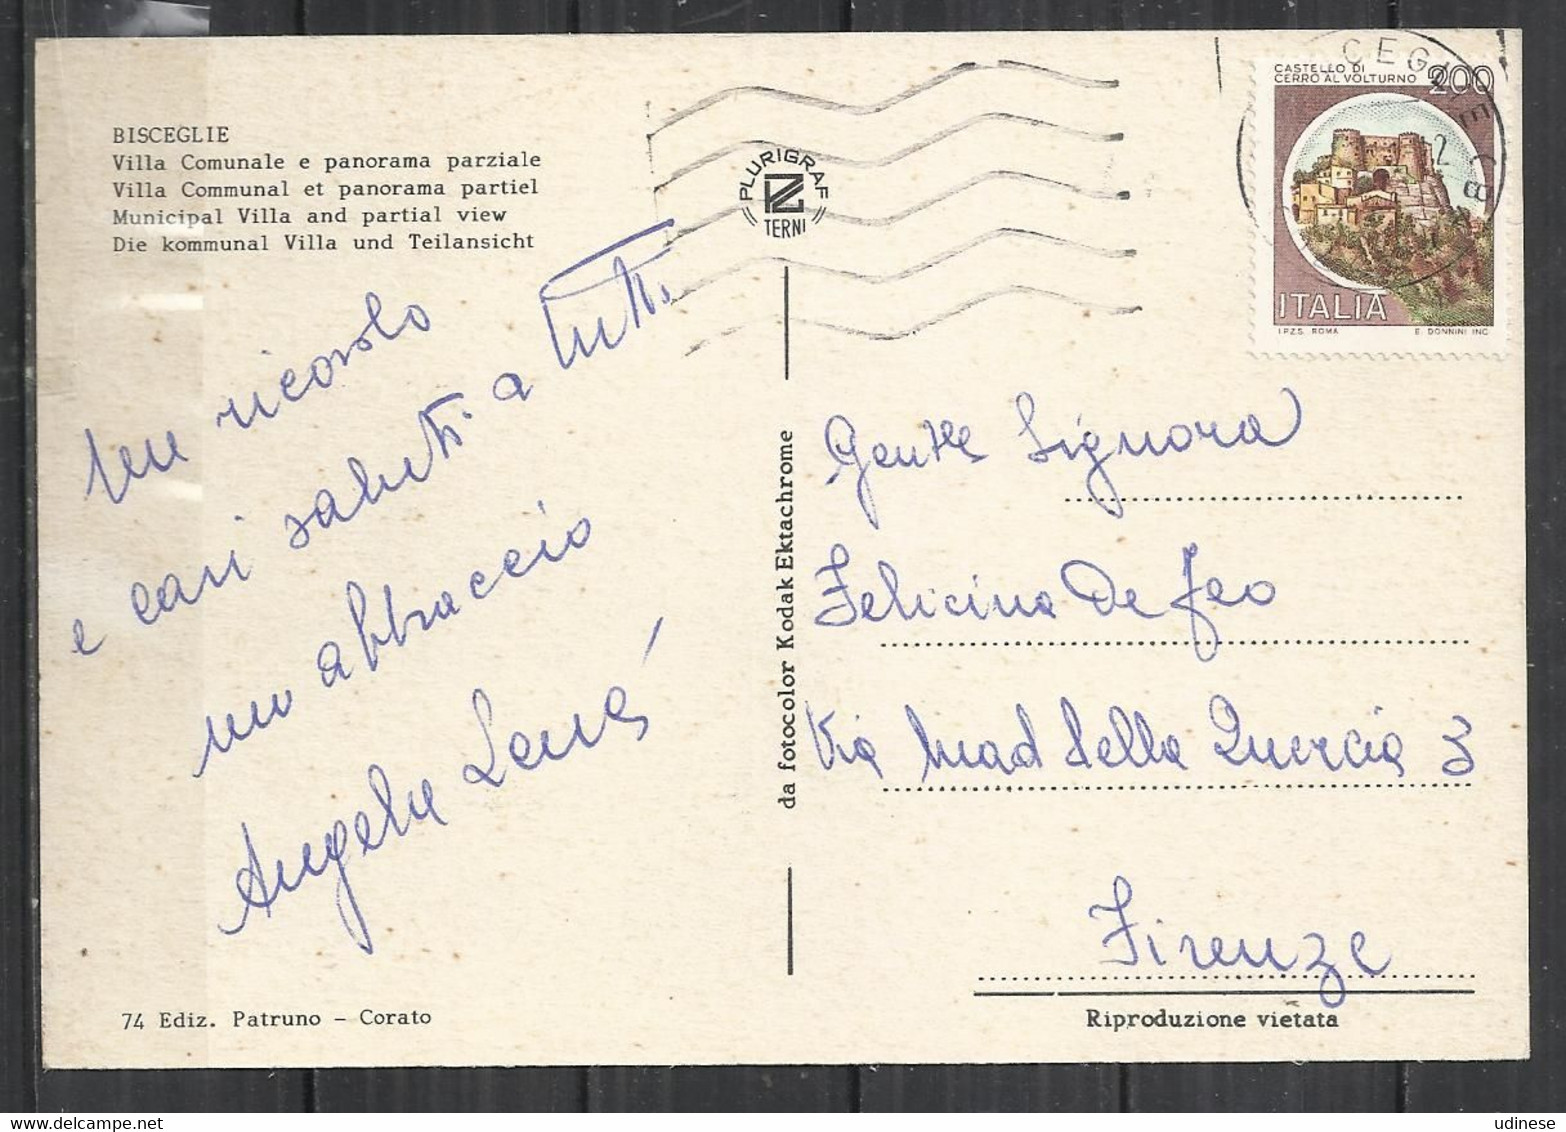 BISCEGLIE
Villa Comunale e panorama parziale
Villa Communal et panorama partiel
Municipal Villa and partial view
Die kommunal Villa und Teilansicht
un ricordo
e cari saluti a tutti
un abbraccio
Angela
74 Ediz. Patruno - Corato
PLURIGRAF
TERNI
da fotocolor Kodak Ektachrome
CASTELLO DI
CERRO AL VOLTURNO
200
ITALIA
I.P.Z.S. ROMA
E. DONNINI INC.
Gentle Signora
Felicina De Feo
Via Mad della Quercia 3
Firenze
Riproduzione vietata
udinese